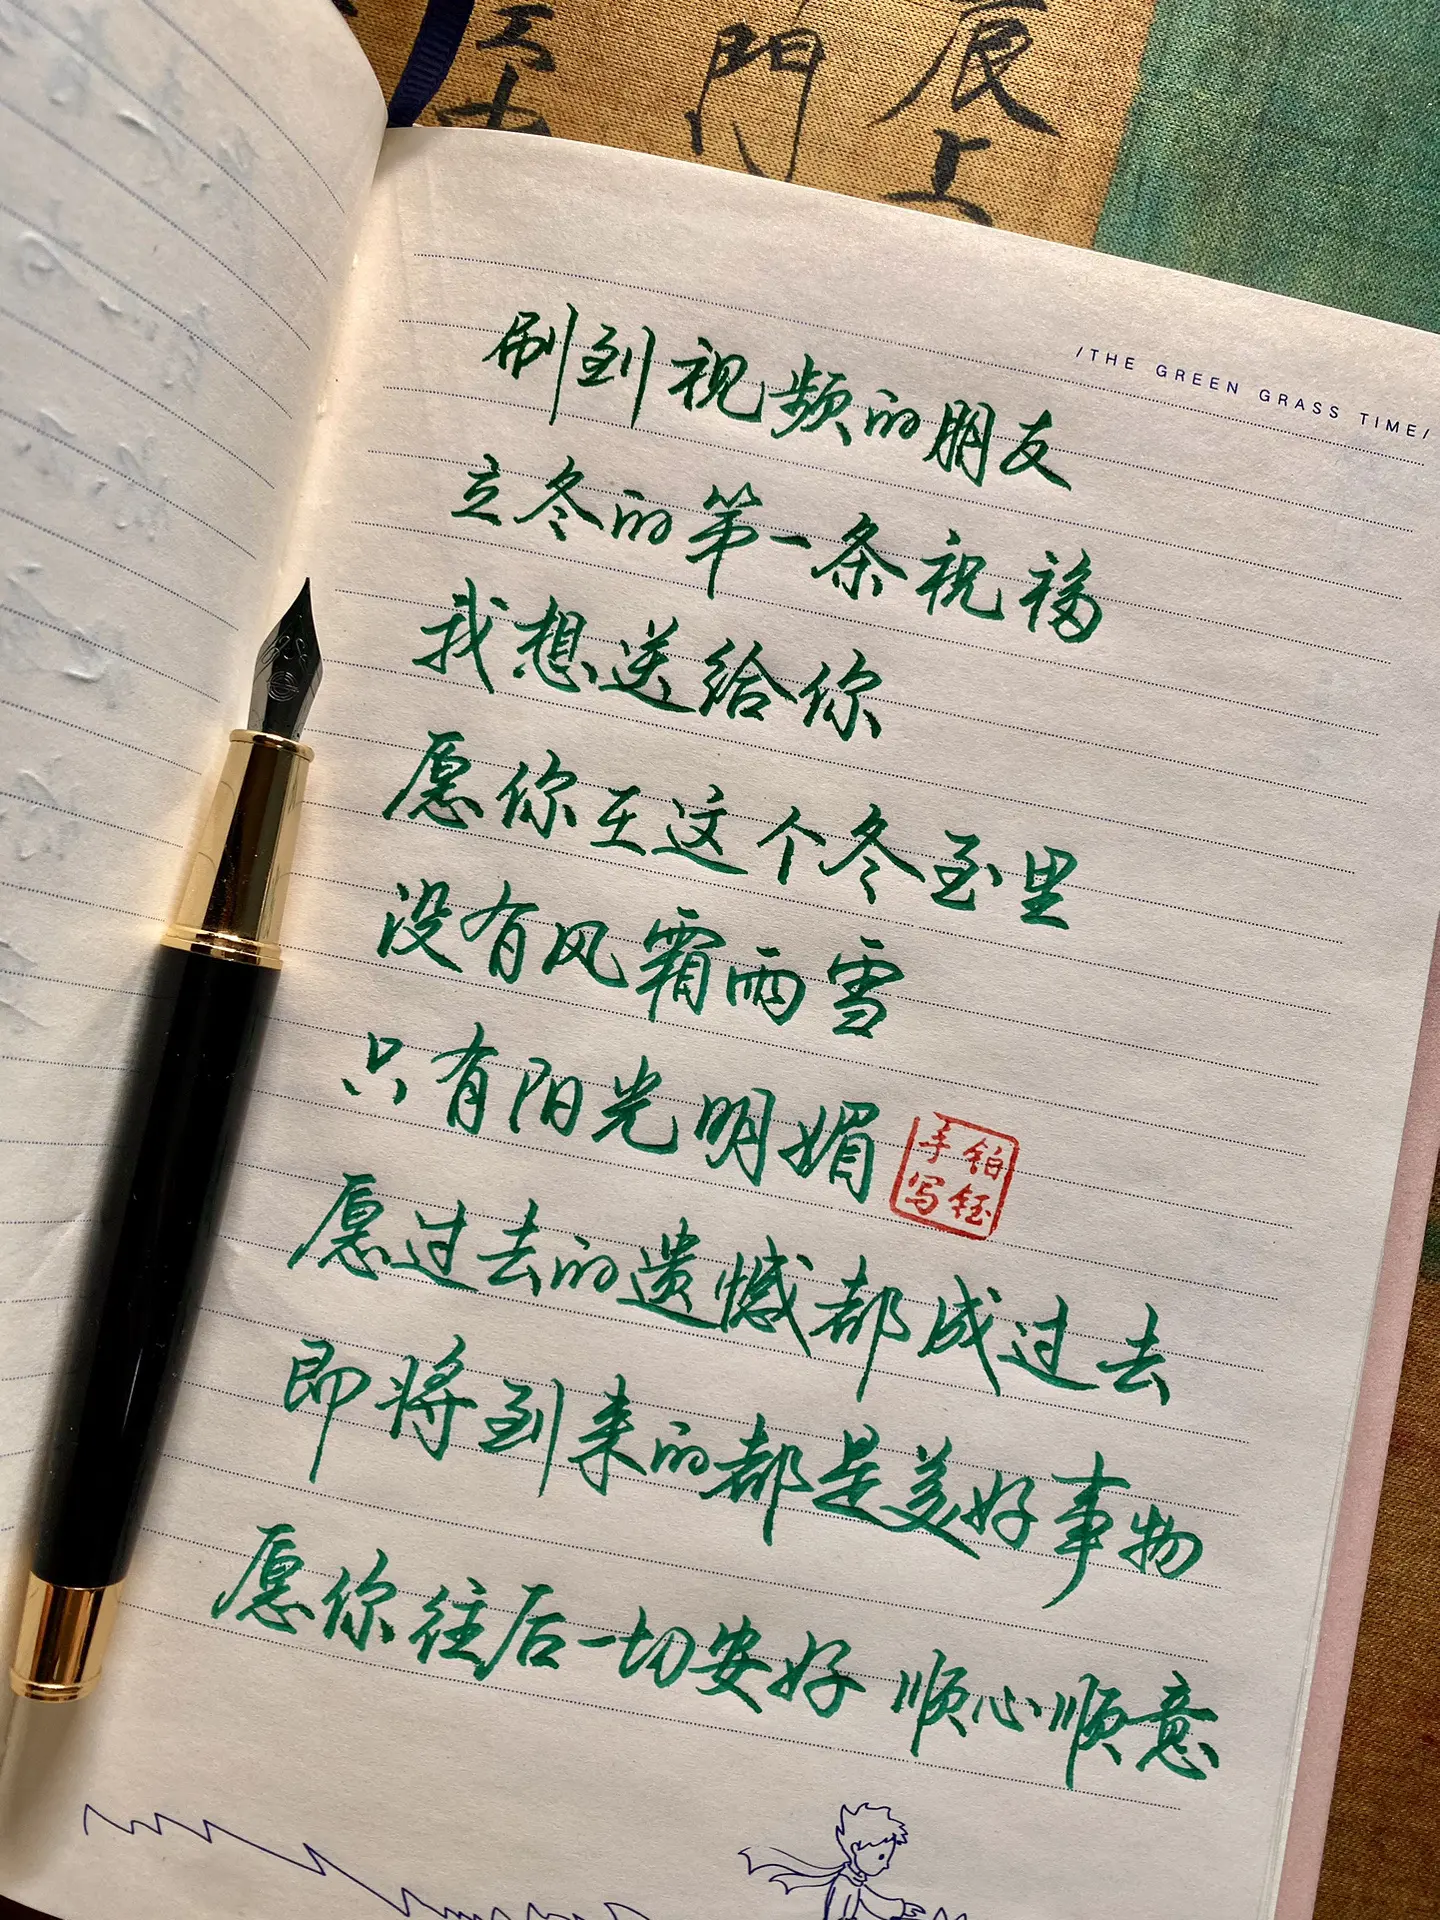 辰上
門
/THE GREEN GRASS TIME/
刷到视频的朋友
立冬的第一条祝福
我想送给你
愿你在这个冬至里
没有风霜雨雪
只有阳光明媚
铂钰
手写
愿过去的遗憾都成过去
即将到来的都是美好事物
愿你往后一切安好 顺心顺意